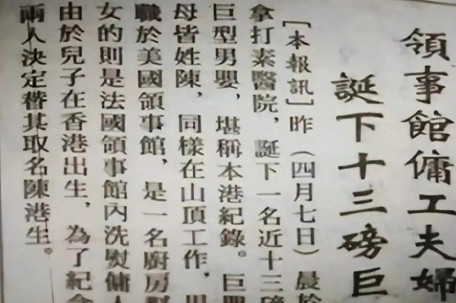 領事館傭工夫婦
誕下十三磅巨
【本報訊】昨（四月七日）晨於
拿打素醫院，誕下一名近十三磅
巨型男嬰，堪稱本港紀錄。巨嬰
母皆姓陳，同樣在山頂工作，男
職於美國領事館，是一名廚房幫
女的則是法國領事館內洗熨傭人
由於兒子在香港出生，為了紀念
兩人決定替其取名陳港生。